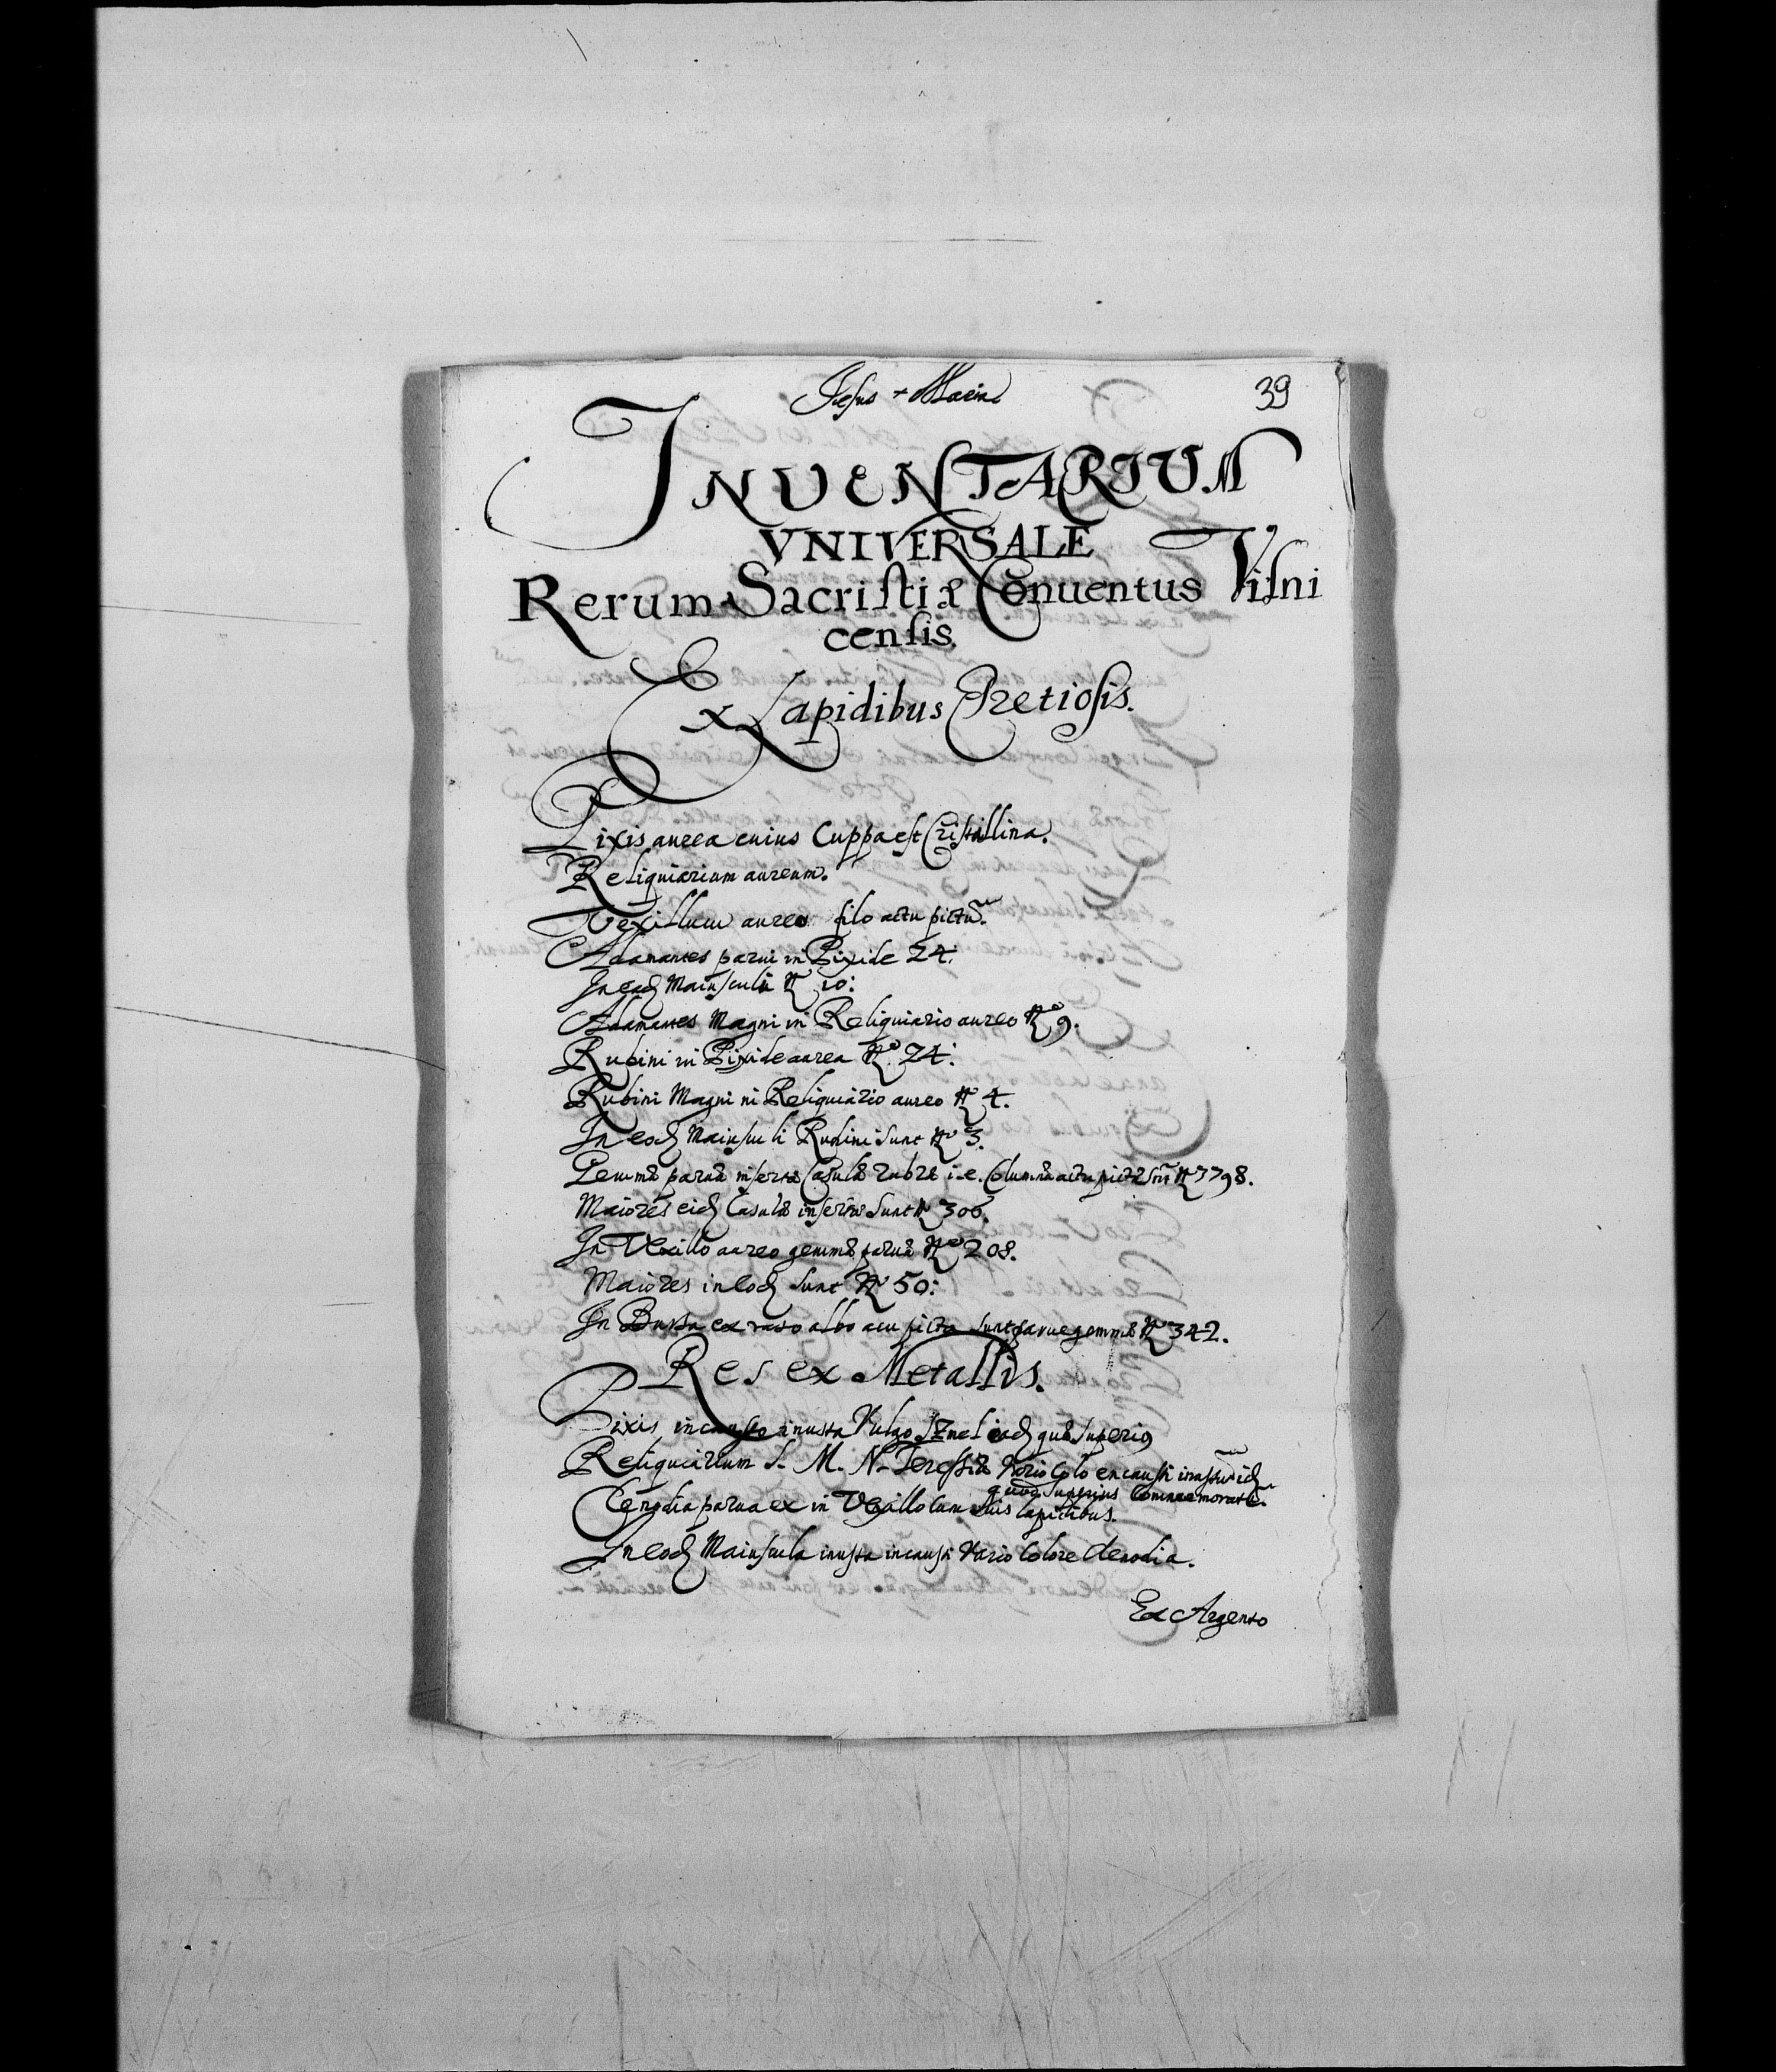 Jesus + Maria
39
INUENTARIUM
VNIVERSALE
Rerum Sacristiæ Conuentus Visni
censis.
Ex Lapidibus Pretiosis.
Pixis aurea cuius Cuppa est Cristallina.
Reliquiarium aureum.
Vexillum aureo filo actu pictũ.
Adamantes parui in Pixide 24.
In eod Maiusculi N 10:
Adamantes Magni in Reliquiario aureo No 9.
Rubini in Pixide aurea No 24.
Rubini Magni in Reliquiario aureo No 4.
In eod Maiusculi Rubini sunt No 3.
Gemmæ paruæ insertæ Casulæ rubræ i.e. Columnæ actu pictæ N 7798.
Maiores eid Casulæ insertæ sunt N 306.
In Vexillo aureo gemmæ paruæ No 208.
Maiores in eod sunt No 50:
In Bursa ex raso albo acu picta sunt paruæ gemmæ No 342.
Res ex Metallis.
Pixis, incausto inusta Vulgo Szmel ead quæ superi9
Reliquiarium S. M. N. Teressiæ Vario Colo encausti id
quod superius Commemorat
parua ex in Vexillo cum suis lapidibus.
In eod Maiuscula inusta incausti Vario Colore Clenodia.
Ex Argento